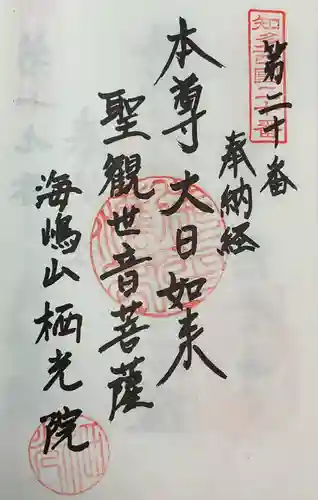 第二十番
奉納経
本尊大日如来
聖観世音菩薩
海嶋山栖光院